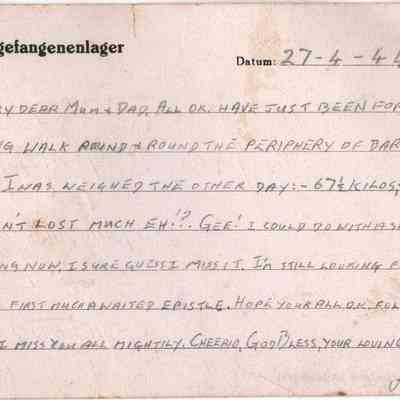 gefangenenlager
Datum: 27-4-44
RY DEAR MUM & DAD, ALL OK. HAVE JUST BEEN FOR
NG WALK ROUND & ROUND THE PERIPHERY OF BAR
I WAS WEIGHED THE OTHER DAY:- 67½ KILOS,
N'T LOST MUCH EH!?. GEE! I COULD DO WITH A S
NG NOW, I SURE GUESS I MISS IT. I'M STILL LOOKING F
FIRST MUCH AWAITED EPISTLE. HOPE YOUR ALL OK. FOL
I MISS YOU ALL MIGHTILY. CHEERIO, GOD BLESS, YOUR LOVING